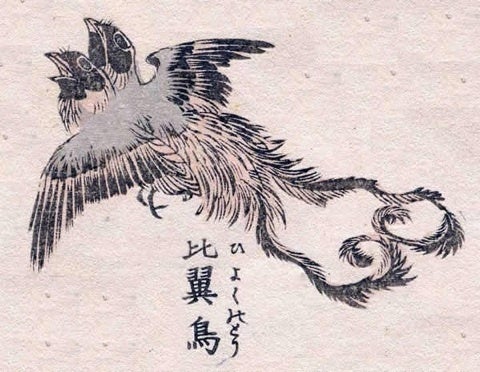 比翼鳥
ひよくのとり